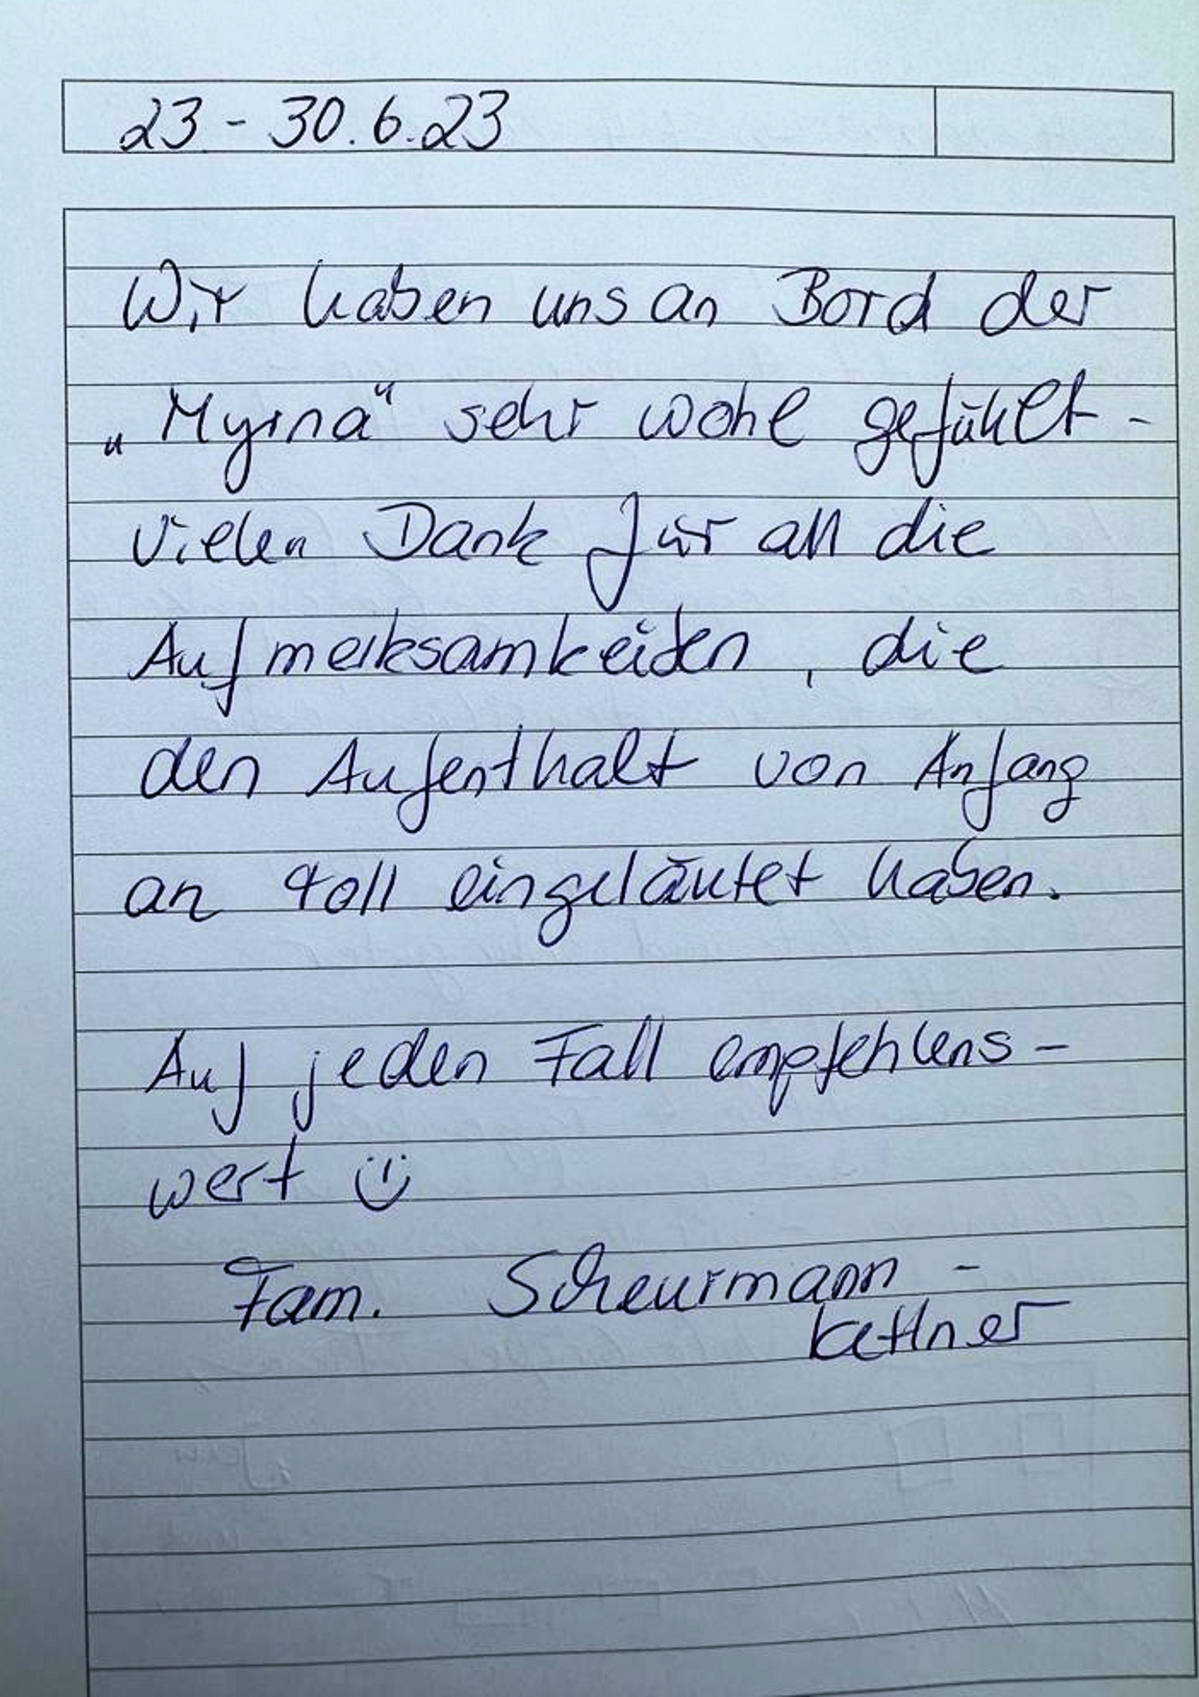 23 - 30.6.23
Wir haben uns an Bord der
„Myrna“ sehr wohl gefühlt -
Vielen Dank für all die
Aufmerksamkeiten, die
den Aufenthalt von Anfang
an toll eingeläutet haben.
Auf jeden Fall empfehlens-
wert ☺
Fam. Scheurmann -
Kettner